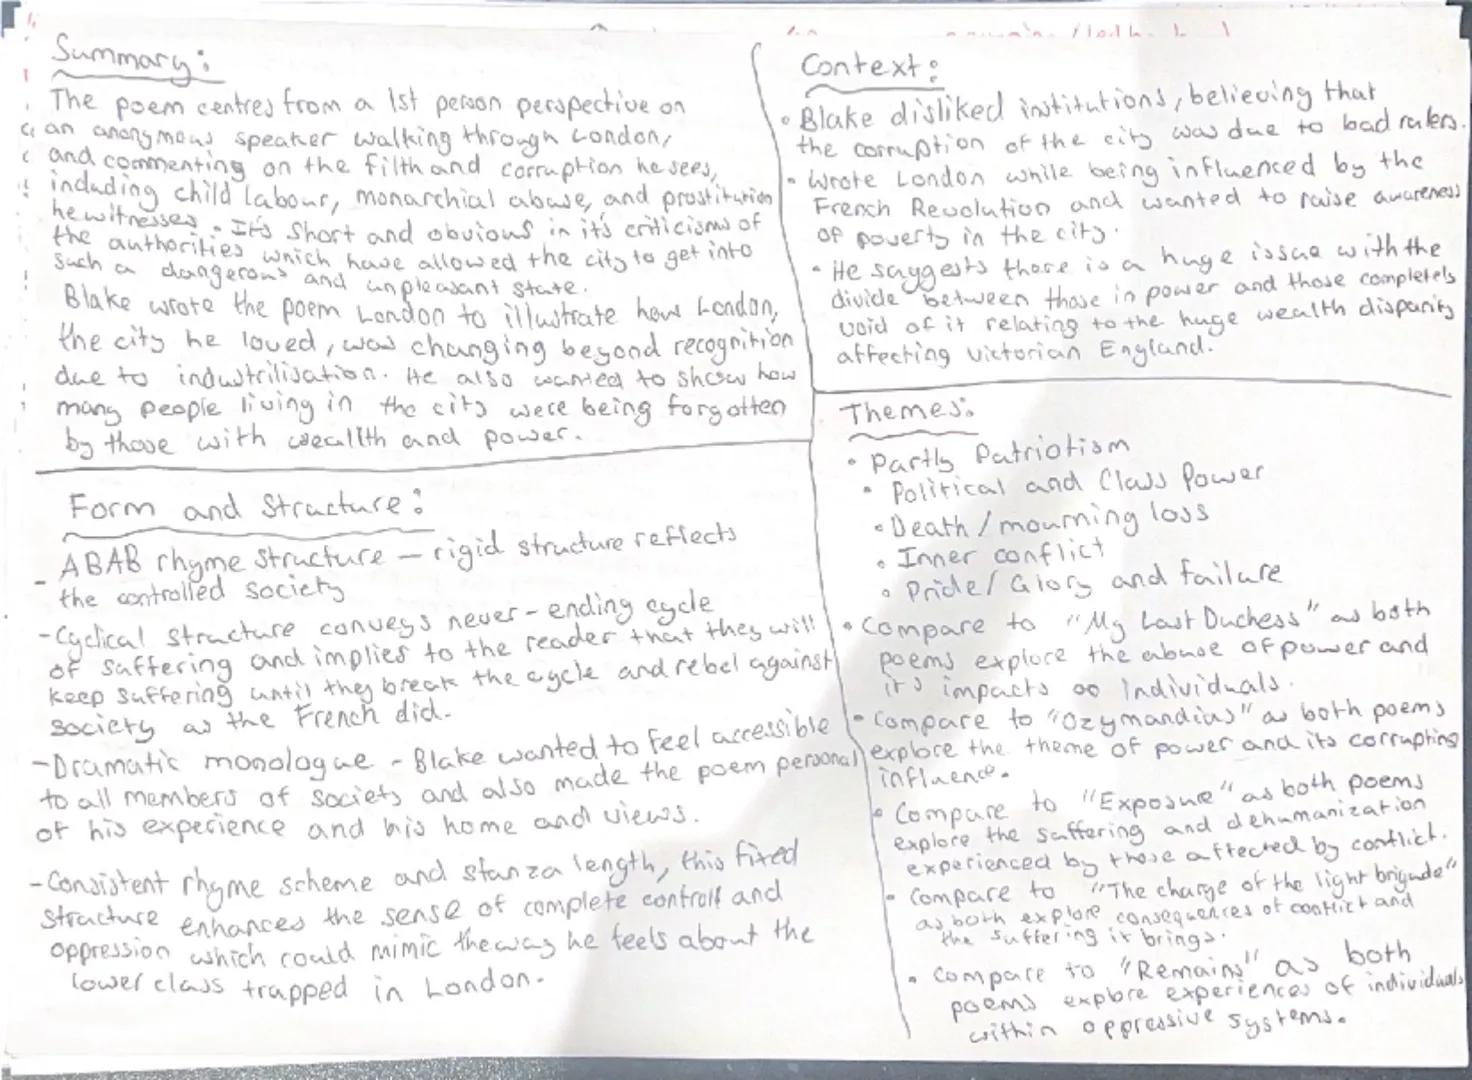 Summary:
The poem centres from a 1st person perspective on
an anonymous speaker walking through London,
and commenting on the filth and corruption he sees,
including child labour, monarchial abuse, and prostitution
he witnesses. It's short and obvious in it's criticisms of
the authorities which have allowed the city to get into
such a dangerous and unpleasant state.
Blake wrote the poem London to illustrate how London,
the city he loved, was changing beyond recognition
due to industrilisation. He also wanted to show how
many people living in the city were being forgotten
by those with weallth and power.
Form and Structure:
- ABAB rhyme structure — rigid structure reflects
the controlled society
- Cyclical structure conveys never-ending cycle
of suffering and implies to the reader that they will
keep suffering until they break the cycle and rebel against
society as the French did.
- Dramatic monologue - Blake wanted to feel accessible
to all members of society and also made the poem personal
of his experience and his home and views.
- Consistent rhyme scheme and stanza length, this fixed
structure enhances the sense of complete controll and
oppression which could mimic the way he feels about the
lower class trapped in London.
Context:
• Blake disliked institutions, believing that
the corruption of the city was due to bad rulers.
• Wrote London while being influenced by the
French Revolution and wanted to raise awareness
of poverty in the city.
• He suggests there is a huge issue with the
divide between those in power and those completely
void of it relating to the huge wealth disparity
affecting victorian England.
Themes:
• Partly Patriotism
• Political and Class Power
• Death/mourning loss
• Inner conflict
• Pride/Glory and failure
• Compare to "My Last Duchess" as both
poems explore the abuse of power and
it's impacts on individuals.
• Compare to "Ozymandias" as both poems
explore the theme of power and its corrupting
influence.
• Compare to "Exposure" as both poems
explore the suffering and dehumanization
experienced by those affected by conflict.
• Compare to "The charge of the light brigade"
as both explore consequences of conflict and
the suffering it brings.
• Compare to "Remains" as both
poems explore experiences of individuals
within oppressive systems.